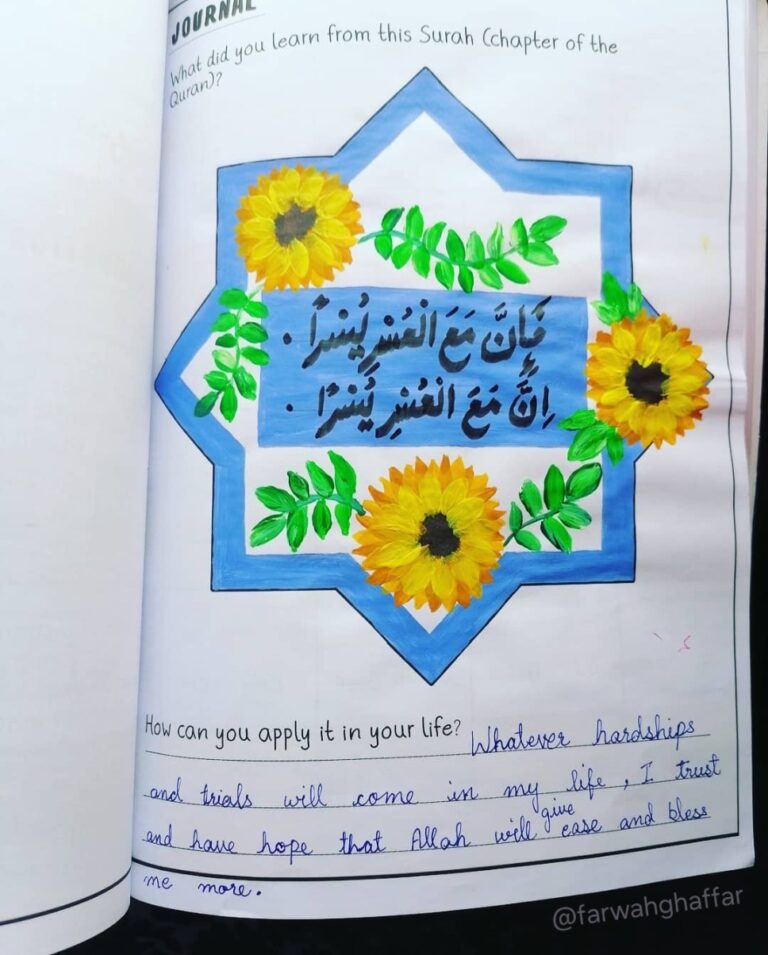 JOURNAL
What did you learn from this Surah (chapter of the
Quran)?
فَإِنَّ مَعَ الْعُسْرِ يُسْرًا .
اِنَّ مَعَ الْعُسْرِ يُسْرًا .
How can you apply it in your life? Whatever hardships
and trials will come in my life, I trust
and have hope that Allah will give ease and bless
me more.
@farwahghaffar